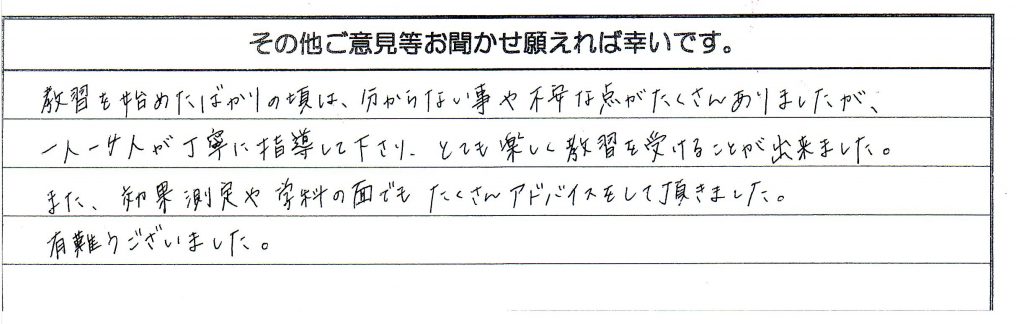 その他ご意見等お聞かせ願えれば幸いです。
教習を始めたばかりの頃は、分からない事や不安な点がたくさんありましたが、
一人一人が丁寧に指導して下さり、とても楽しく教習を受けることが出来ました。
また、効果測定や学科の面でもたくさんアドバイスをして頂きました。
有難うございました。